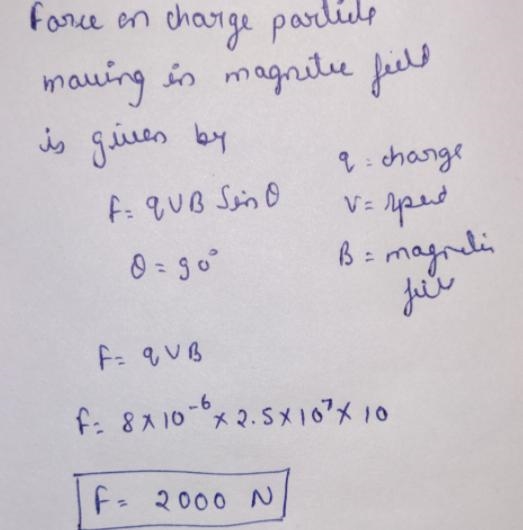 Force on charge particle
moving in magnetic field
is given by
q = charge
F = qVB Sin θ
V = speed
θ = 90°
B = magnetic
field
F = qVB
F = 8 × 10⁻⁶ × 2.5 × 10⁷ × 10
F = 2000 N